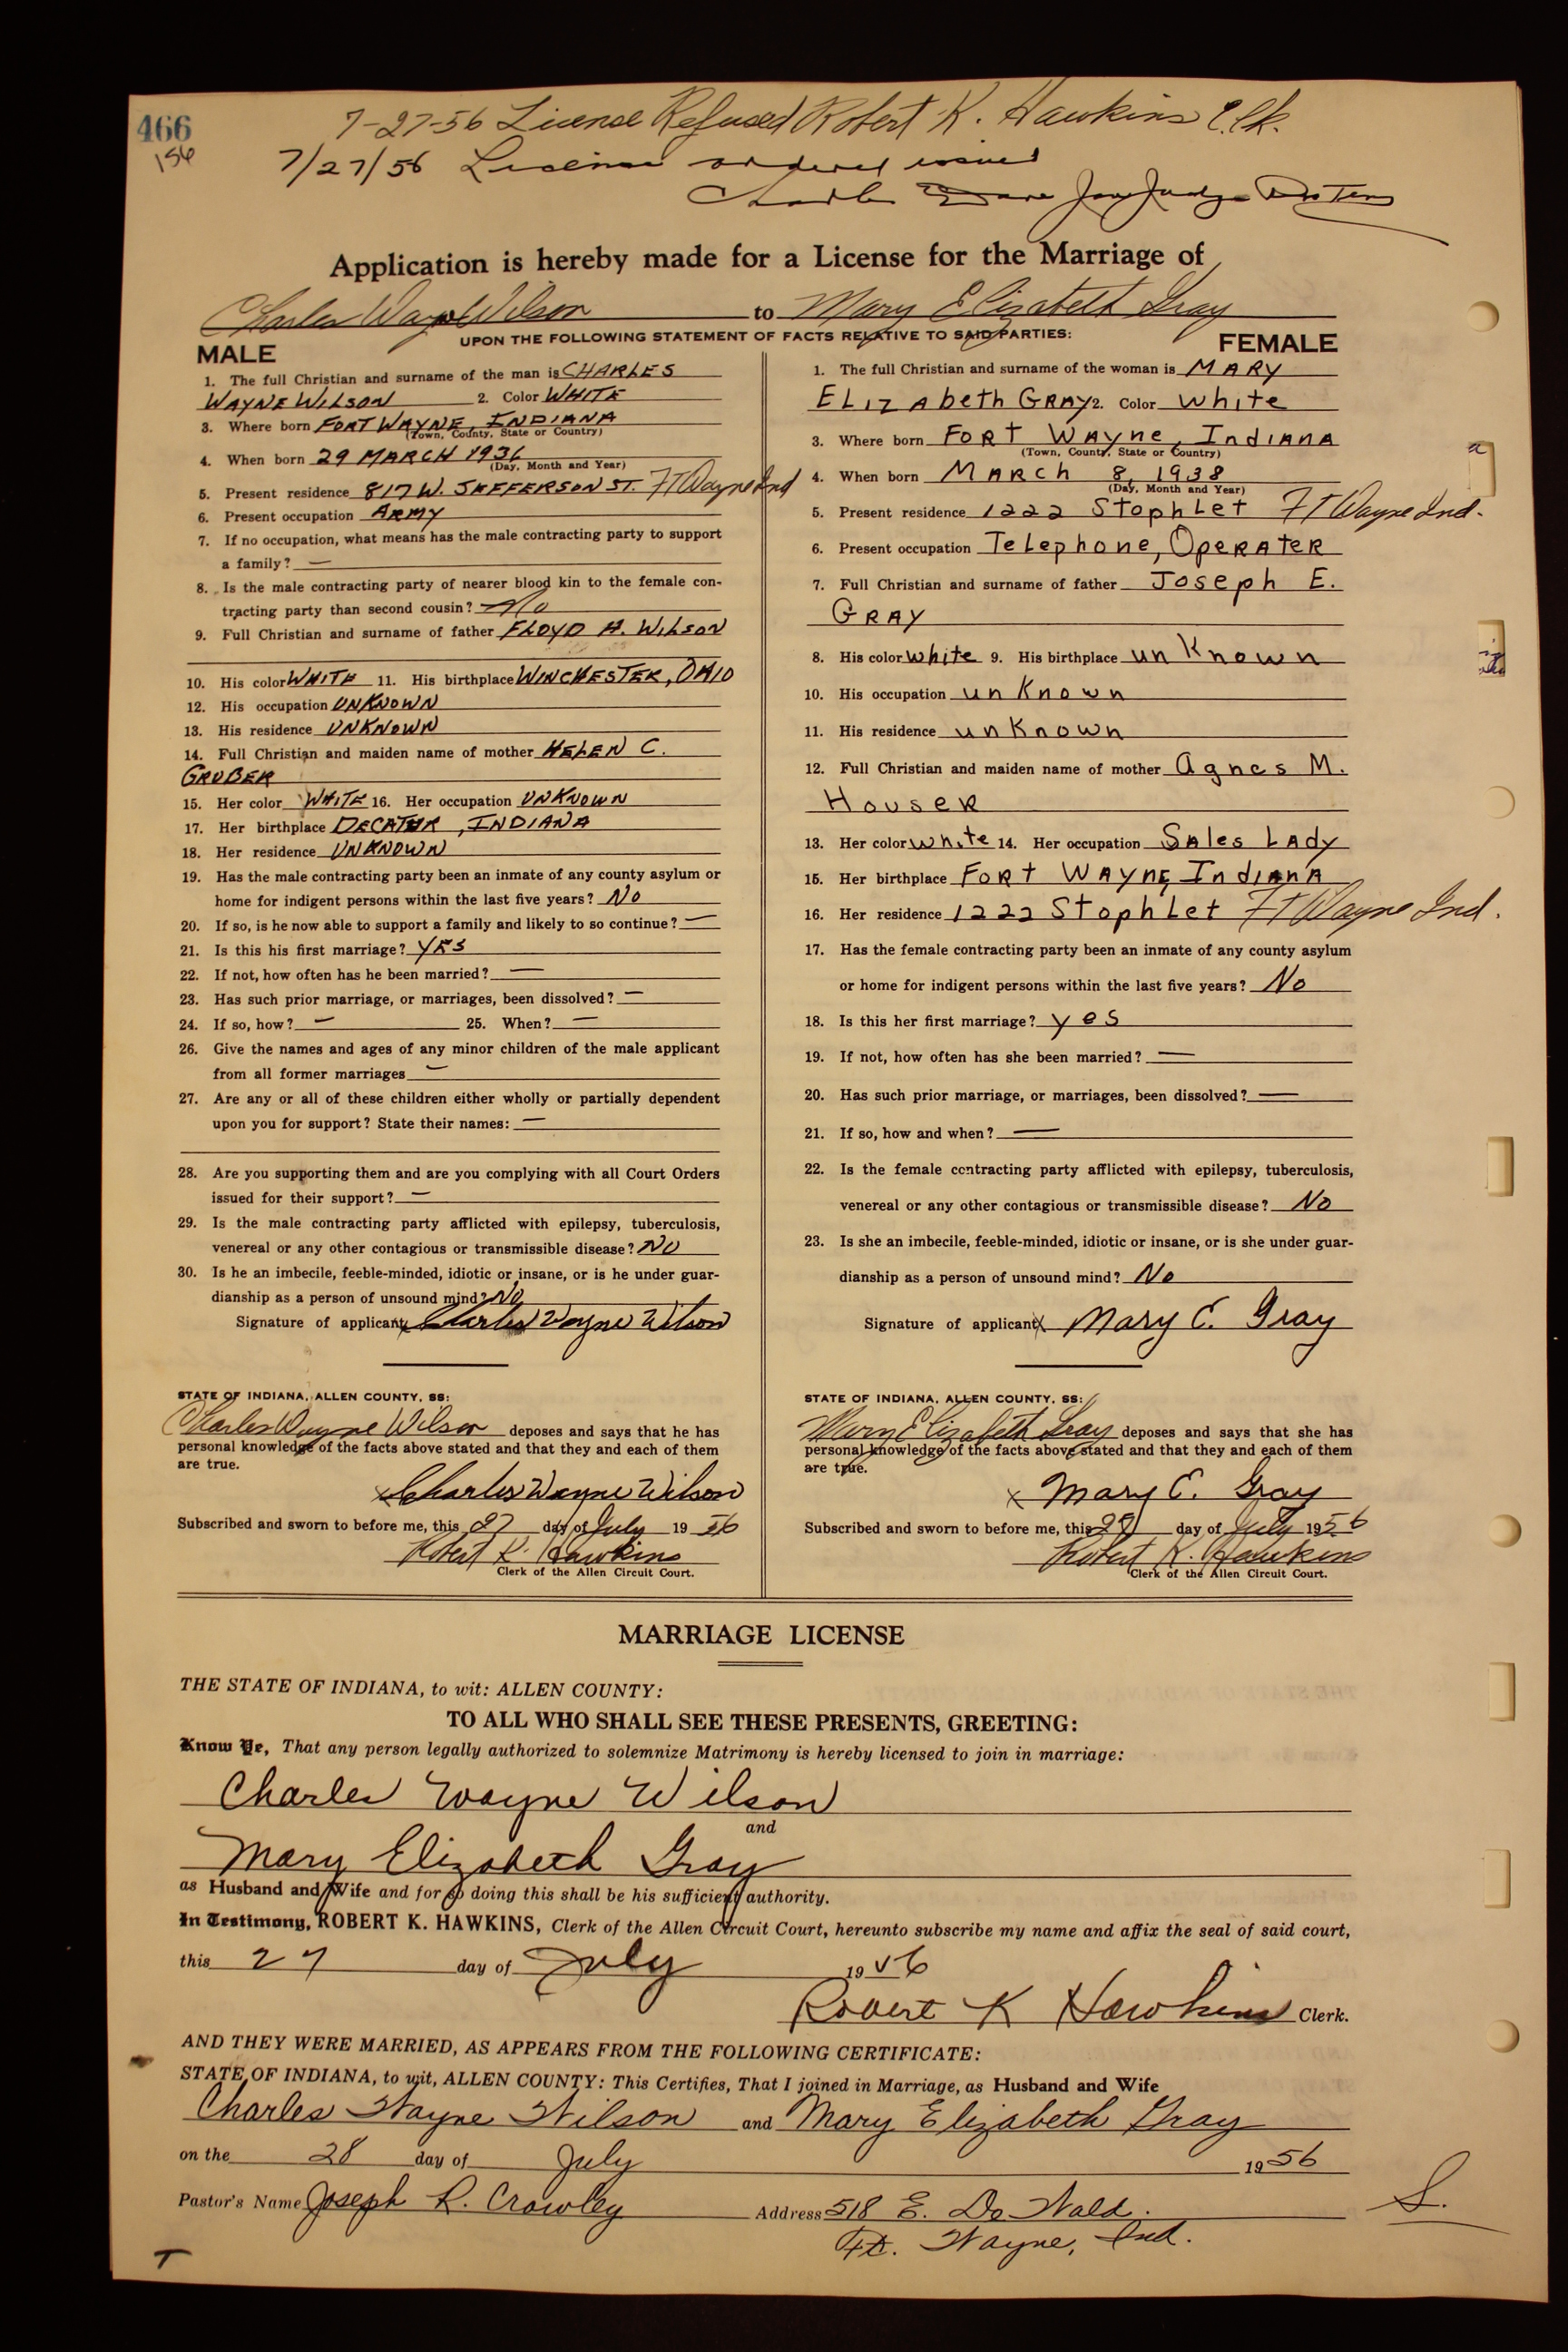 466
156
7-27-56 License Refused Robert K. Hawkins Clk.
7/27/56 License ordered issued
Judge
Application is hereby made for a License for the Marriage of
Charles Wayne Wilson to Mary Elizabeth Gray
UPON THE FOLLOWING STATEMENT OF FACTS RELATIVE TO SAID PARTIES:
MALE
1. The full Christian and surname of the man is CHARLES
WAYNE WILSON 2. Color WHITE
3. Where born FORT WAYNE, INDIANA
(Town, County, State or Country)
4. When born 29 MARCH 1936
(Day, Month and Year)
5. Present residence 817 W. JEFFERSON ST. FT Wayne Ind
6. Present occupation ARMY
7. If no occupation, what means has the male contracting party to support
a family? —
8. Is the male contracting party of nearer blood kin to the female con-
tracting party than second cousin? No
9. Full Christian and surname of father FLOYD H. WILSON
10. His color WHITE 11. His birthplace WINCHESTER, OHIO
12. His occupation UNKNOWN
13. His residence UNKNOWN
14. Full Christian and maiden name of mother HELEN C.
GRUBER
15. Her color WHITE 16. Her occupation UNKNOWN
17. Her birthplace DECATUR, INDIANA
18. Her residence UNKNOWN
19. Has the male contracting party been an inmate of any county asylum or
home for indigent persons within the last five years? No
20. If so, is he now able to support a family and likely to so continue? —
21. Is this his first marriage? YES
22. If not, how often has he been married? —
23. Has such prior marriage, or marriages, been dissolved? —
24. If so, how? — 25. When? —
26. Give the names and ages of any minor children of the male applicant
from all former marriages —
27. Are any or all of these children either wholly or partially dependent
upon you for support? State their names: —
28. Are you supporting them and are you complying with all Court Orders
issued for their support? —
29. Is the male contracting party afflicted with epilepsy, tuberculosis,
venereal or any other contagious or transmissible disease? NO
30. Is he an imbecile, feeble-minded, idiotic or insane, or is he under guar-
dianship as a person of unsound mind? NO
Signature of applicant x Charles Wayne Wilson
STATE OF INDIANA, ALLEN COUNTY, SS:
Charles Wayne Wilson deposes and says that he has
personal knowledge of the facts above stated and that they and each of them
are true.
x Charles Wayne Wilson
Subscribed and sworn to before me, this 27 day of July 19 56
Robert K. Hawkins
Clerk of the Allen Circuit Court.
FEMALE
1. The full Christian and surname of the woman is MARY
ELIZAbeth GRAY 2. Color white
3. Where born FORT WAYNE, INDIANA
(Town, County, State or Country)
4. When born MARCH 8, 1938
(Day, Month and Year)
5. Present residence 1222 StophLet FT Wayne Ind.
6. Present occupation TeLephone, OpeRAteR
7. Full Christian and surname of father Joseph E.
GRAY
8. His color white 9. His birthplace unKnown
10. His occupation unKnown
11. His residence unKnown
12. Full Christian and maiden name of mother Agnes M.
HouseR
13. Her color white 14. Her occupation SAles LAdy
15. Her birthplace FORT WAYNE, IndiANA
16. Her residence 1222 StophLet FT Wayne Ind.
17. Has the female contracting party been an inmate of any county asylum
or home for indigent persons within the last five years? No
18. Is this her first marriage? yes
19. If not, how often has she been married? —
20. Has such prior marriage, or marriages, been dissolved? —
21. If so, how and when? —
22. Is the female contracting party afflicted with epilepsy, tuberculosis,
venereal or any other contagious or transmissible disease? No
23. Is she an imbecile, feeble-minded, idiotic or insane, or is she under guar-
dianship as a person of unsound mind? No
Signature of applicant x Mary E. Gray
STATE OF INDIANA, ALLEN COUNTY, SS:
Mary Elizabeth Gray deposes and says that she has
personal knowledge of the facts above stated and that they and each of them
are true.
x Mary E. Gray
Subscribed and sworn to before me, this 27 day of July 1956
Robert K. Hawkins
Clerk of the Allen Circuit Court.
MARRIAGE LICENSE
THE STATE OF INDIANA, to wit: ALLEN COUNTY:
TO ALL WHO SHALL SEE THESE PRESENTS, GREETING:
Know Ye, That any person legally authorized to solemnize Matrimony is hereby licensed to join in marriage:
Charles Wayne Wilson
and
Mary Elizabeth Gray
as Husband and Wife and for so doing this shall be his sufficient authority.
In Testimony, ROBERT K. HAWKINS, Clerk of the Allen Circuit Court, hereunto subscribe my name and affix the seal of said court,
this 27 day of July 1956
Robert K Hawkins Clerk.
AND THEY WERE MARRIED, AS APPEARS FROM THE FOLLOWING CERTIFICATE:
STATE OF INDIANA, to wit, ALLEN COUNTY: This Certifies, That I joined in Marriage, as Husband and Wife
Charles Wayne Wilson and Mary Elizabeth Gray
on the 28 day of July 1956
Pastor's Name Joseph R. Crowley Address 518 E. De Wald.
Ft. Wayne, Ind.
S.
T